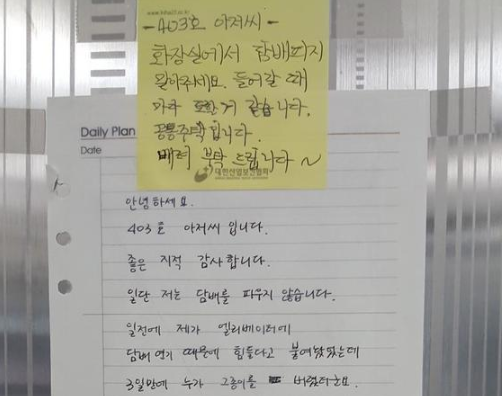 -403호 아저씨-
화장실에서 담배피지
말아주세요. 들어갈 때
마다 같습니다.
공동주택입니다.
배려 부탁 드립니다~
대한산업보건협회
Daily Plan
Date
안녕하세요.
403호 아저씨 입니다.
좋은 지적 감사합니다.
일단 저는 담배를 피우지 않습니다.
일전에 제가 엘리베이터에
담배 연기 때문에 힘들다고 붙여놨었는데
3일만에 누가 그종이를 버렸더군요.